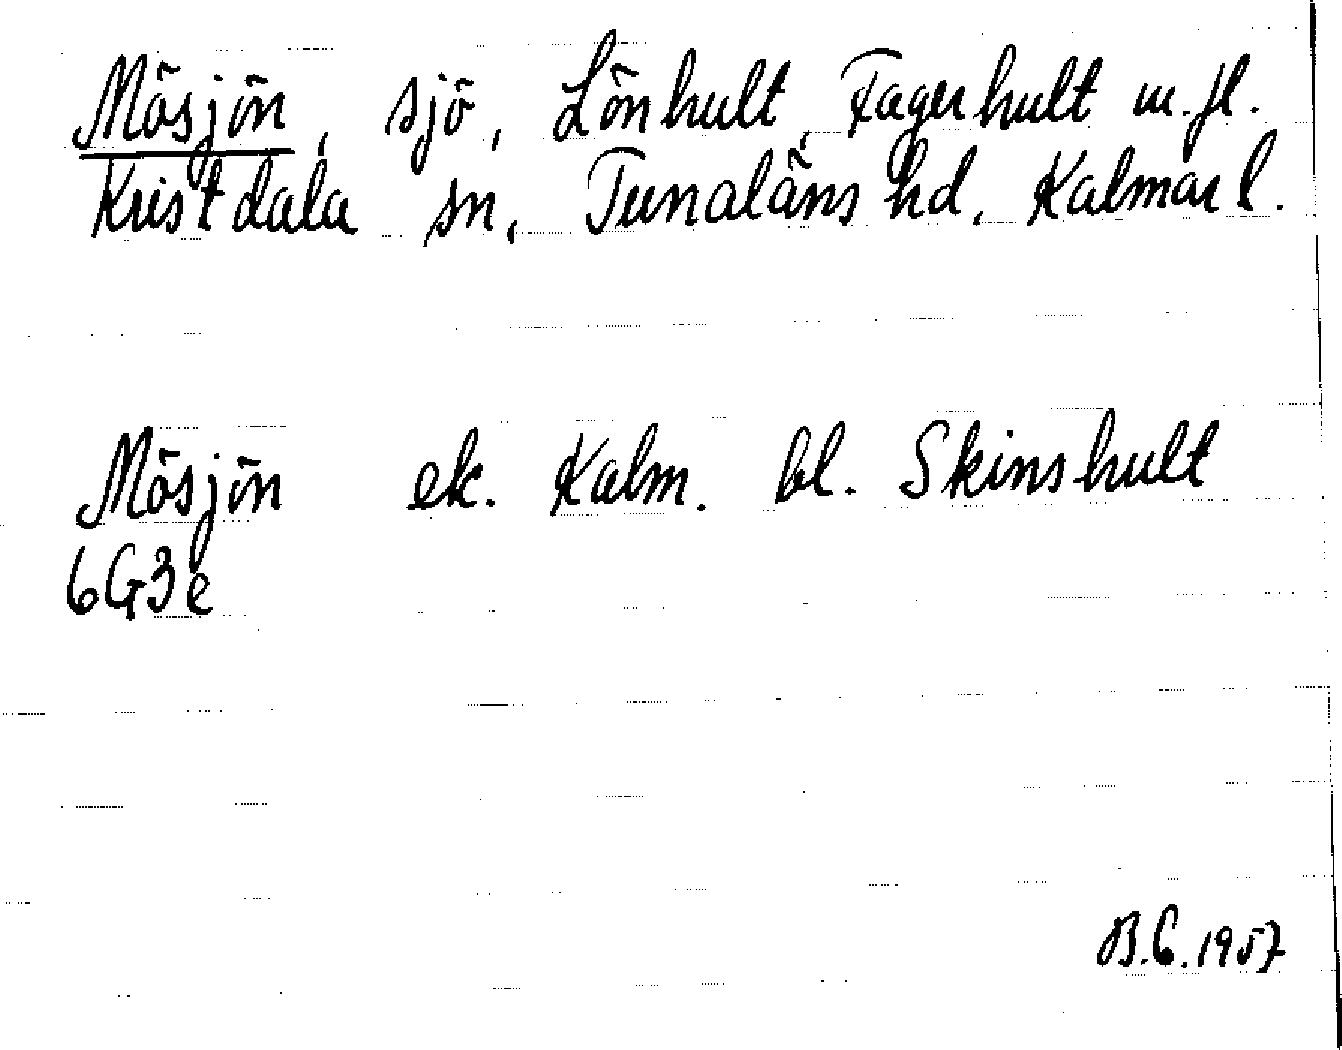 Mösjön, sjö, Lönhult, Fagerhult m.fl.
Kristdala sn, Tunaläns hd, Kalmar l.
Mösjön ek. Kalm. bl. Skinshult
6G3e
B.G. 1957